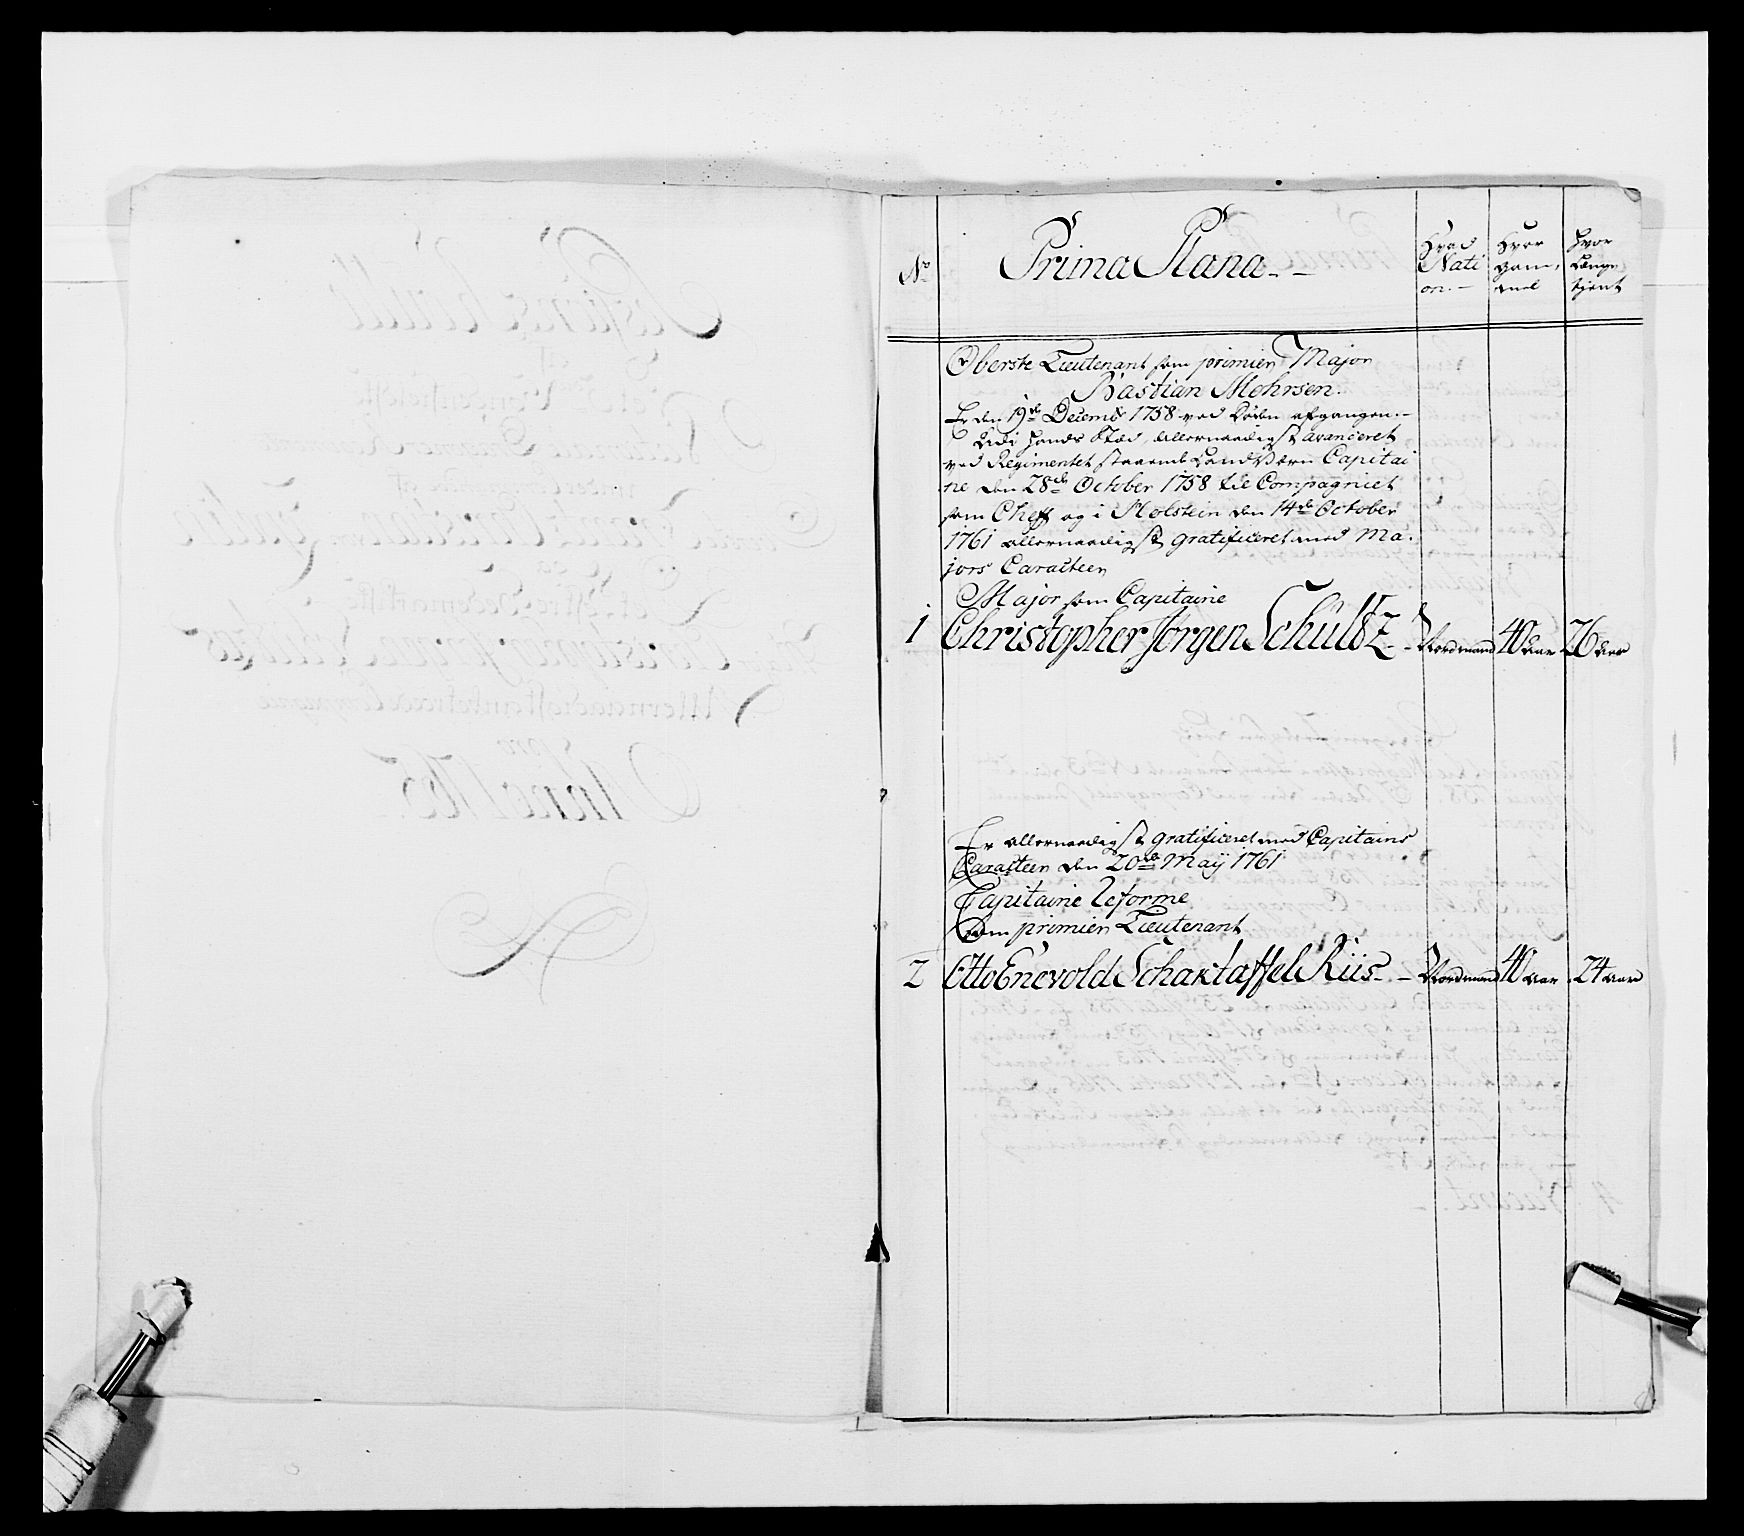 No
Prima Plana
Hvad
Nati
on.
Hvor
gam,
mel
Hvor
Længe
tjent
Oberste Lieutenant som primier Major
Bastian Mohrsen.
Er den 19de Decembr 1758 ved Døden afgangen.
Udi hands Stæd, allernaadigst avanceret
ved Regimentet staaende LandVærn Capitai
ne den 28de October 1758 til Compagniet
som Cheff og i Holstein den 14de October
1761 allernaadigst gratificeret med Ma-
jors Caracteer
Major som Capitaine
1 Christopher Jørgen Schultz Nordmand 40 aar 26 aar
Er allernaadigst gratificeret med Capitains
Caracteer den 20de Maij 1761
Capitaine Reforme
Som primier Lieutenant
2 Otto Enevold Schaktaffel Riis Nordmand 40 aar 24 aar